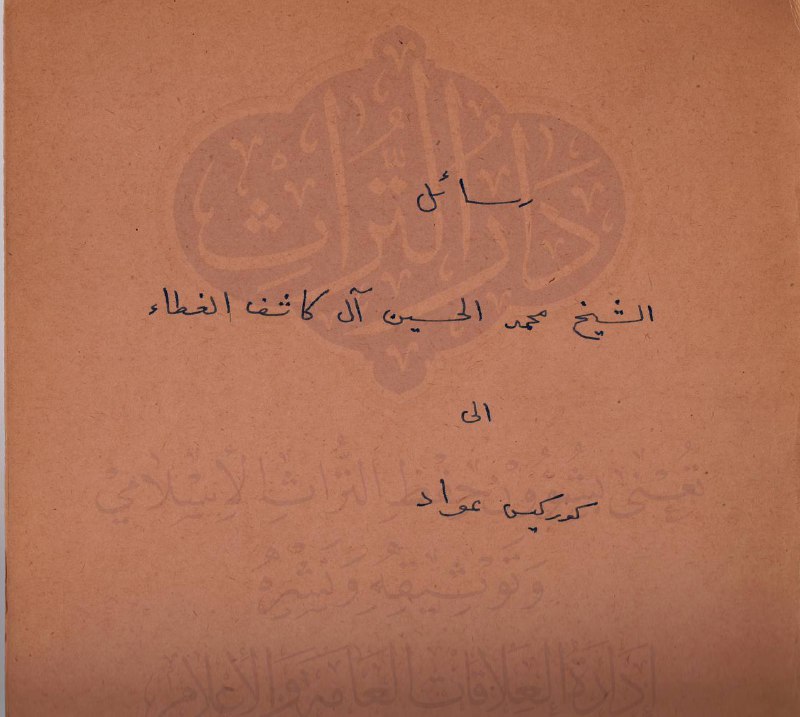 رسائل
الشيخ محمد الحسين آل كاشف الغطاء
الى
كوركيس عواد
دَارُ التُّرَاثِ
تُعْنَى بِشُؤُونِ حِفْظِ التُّرَاثِ الْإِسْلَامِيِّ
وَتَوْثِيقِهِ وَنَشْرِهِ
إدارة العلاقات العامة والأعلام